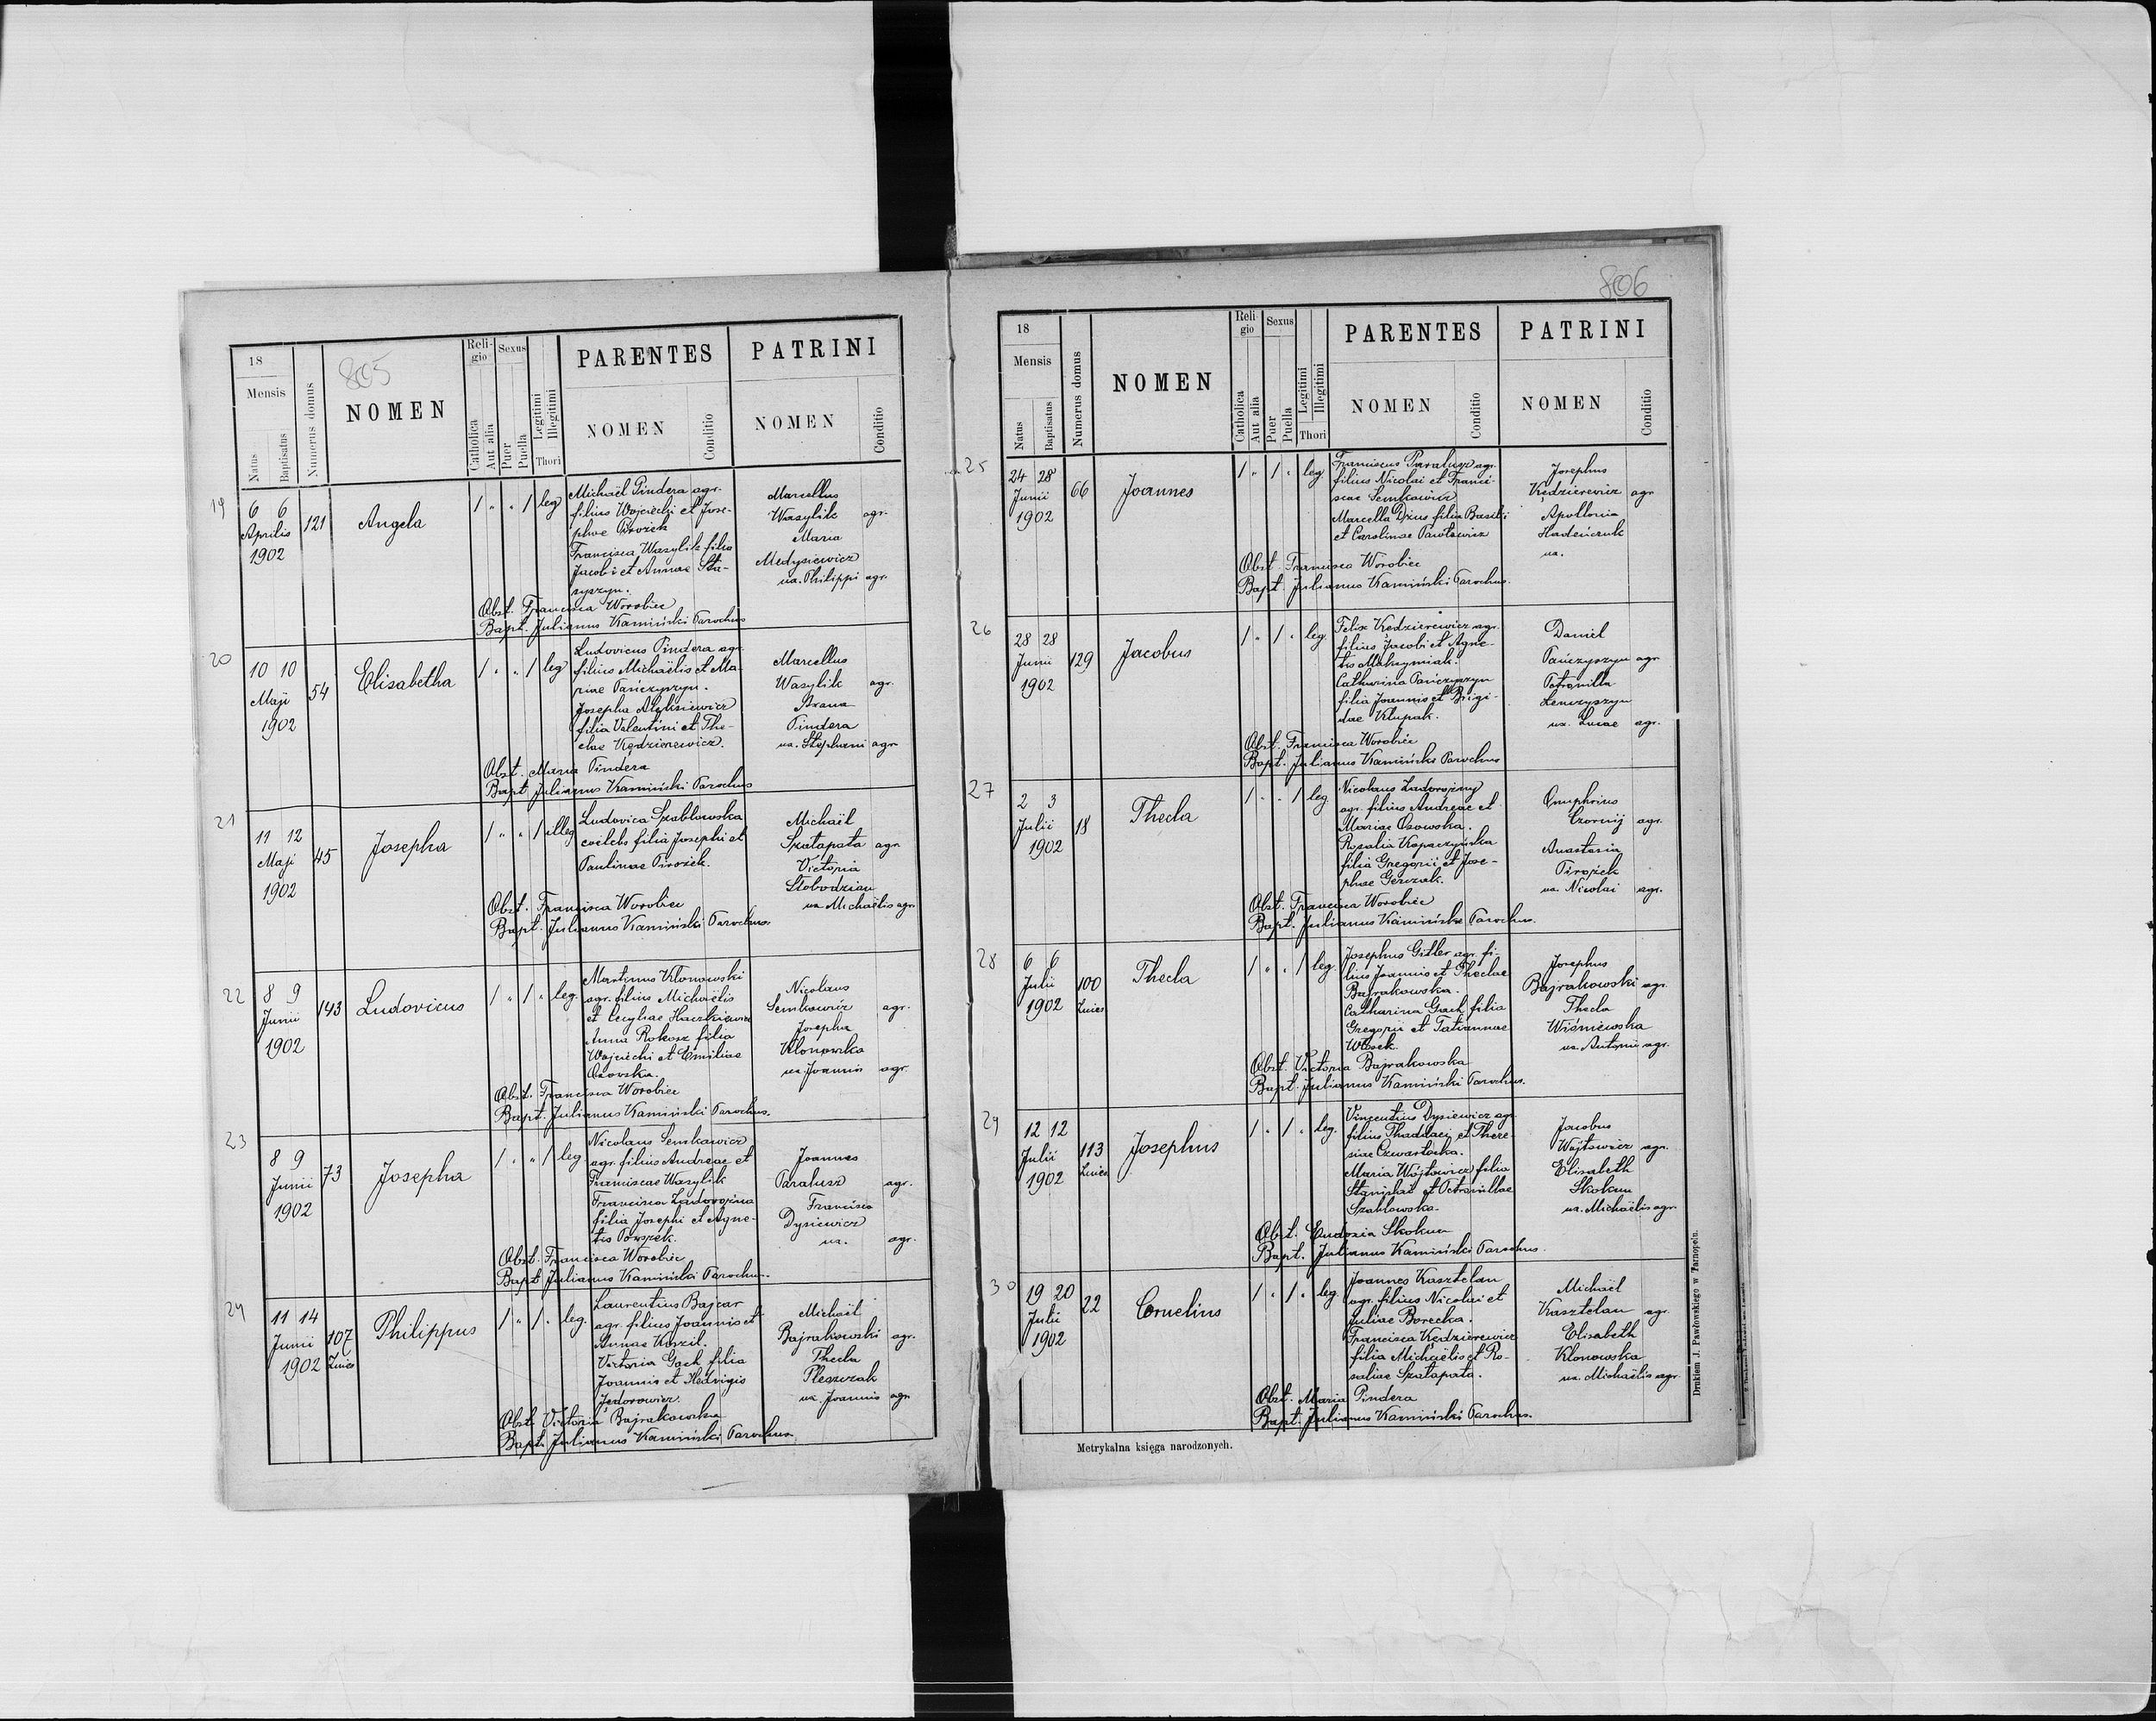 805
18
Mensis
Natus
Baptisatus
Numerus domus
NOMEN
Religio
Catholica
Aut alia
Sexus
Puer
Puella
Legitimi
Illegitimi
Thori
PARENTES
NOMEN
Conditio
PATRINI
NOMEN
Conditio
19
6 6
Aprilis
1902
121
Angela
1 " " 1 leg
Michaël Pindera agr.
filius Wojciechi et Jose-
phae Pirożek
Francisca Wasylik filia
Jacobi et Annae Sta-
syszyn.
Marcellus
Wasylik agr.
Maria
Medysiewicz
ux. Philippi agr.
Obst. Francisca Worobiec
Bapt. Julianus Kamiński Parochus
20
10 10
Maji
1902
54
Elisabetha
1 " " 1 leg
Ludovicus Pindera agr.
filius Michaëlis et Ma-
riae Pańczyszyn.
Josepha
filia Valentini et The-
clae Kędzierewicz.
Marcellus
Wasylik agr.
Pindera
ux. Stephani agr.
Obst. Maria Pindera
Bapt. Julianus Kamiński Parochus
21
11 12
Maji
1902
45
Josepha
1 " " 1 illeg
Ludovica Szablowska
coelebs filia Josephi et
Paulinae Pirożek.
Michaël
Szatapata agr.
Victoria
Slobodzian
ux. Michaëlis agr.
Obst. Francisca Worobiec
Bapt. Julianus Kamiński Parochus.
22
8 9
Junii
1902
143
Ludovicus
1 " 1 " leg.
Martinus Klonowski
agr. filius Michaëlis
et
Anna Rokosz filia
Wojciechi et Emiliae
Osowska.
Nicolaus
Semkowicz agr.
Josepha
Klonowska
ux. Joannis agr.
Obst. Francisca Worobiec
Bapt. Julianus Kamiński Parochus.
23
8 9
Junii
1902
73
Josepha
1 " " 1 leg
Nicolaus Semkowicz
agr. filius Andreae et
Franciscae Wasylik
Francisca Zadorożna
filia Josephi et Agne-
tis
Joannes
Paralusz agr.
Francisca
Dysiewicz
ux. agr.
Obst. Francisca Worobiec
Bapt. Julianus Kamiński Parochus.
24
11 14
Junii
1902
107
Znies
Philippus
1 " 1 " leg.
Laurentius Bajcar
agr. filius Joannis et
Annae
Victoria Gach filia
Joannis et Hedvigis
Fedorowicz
Michaël
Bajrakowski agr.
Thecla
Pleszczak
ux. Joannis agr.
Obst. Victoria Bajrakowska
Bapt. Julianus Kamiński Parochus
806
18
Mensis
Natus
Baptisatus
Numerus domus
NOMEN
Religio
Catholica
Aut alia
Sexus
Puer
Puella
Legitimi
Illegitimi
Thori
PARENTES
NOMEN
Conditio
PATRINI
NOMEN
Conditio
25
24 28
Junii
1902
66
Joannes
1 " 1 " leg.
Franciscus Paralusz agr.
filius Nicolai et Franci-
scae Semkowicz
Marcella Dzius filia Basilii
et Carolinae Pawłowicz
Josephus
Kędzierewicz agr.
Apollonia
Hadeńczuk
ux.
Obst. Francisca Worobiec
Bapt. Julianus Kamiński Parochus.
26
28 28
Junii
1902
129
Jacobus
1 " 1 " leg.
Felix Kędzierewicz agr.
filius Jacobi et Agne-
tis Maksymiak.
Catharina Pańczyszyn
filia Joannis et Brigi-
dae Klupak.
Daniel
Pańczyszyn agr.
Petronilla
Lenczyszyn
ux. Lucae agr.
Obst. Francisca Worobiec
Bapt. Julianus Kamiński Parochus
27
2 3
Julii
1902
18
Thecla
1 " " 1 leg.
Nicolaus Zadorożny
agr. filius Andreae et
Mariae Osowska.
Rosalia Kopaczyńska
filia Gregorii et Jose-
phae Gerczak.
Onuphrius
Czornij agr.
Anastasia
Pirożek
ux. Nicolai agr.
Obst. Francisca Worobiec
Bapt. Julianus Kamiński Parochus.
28
6 6
Julii
1902
100
Znies
Thecla
1 " " 1 leg.
Josephus Gitler agr. fi-
lius Joannis et Theclae
Bajrakowska.
Catharina Gach filia
Gregorii et Tatiannae
Włosek.
Josephus
Bajrakowski agr.
Thecla
Wiśniewska
ux. Antonii agr.
Obst. Victoria Bajrakowska
Bapt. Julianus Kamiński Parochus.
29
12 12
Julii
1902
113
Znies
Josephus
1 " 1 " leg.
Vincentius Dysiewicz agr.
filius Thaddaei et There-
siae Czwartacka.
Maria Wojtowicz filia
Stanislai et Petronillae
Szablowska.
Jacobus
Wojtowicz agr.
Elisabeth
Skokun
ux. Michaëlis agr.
Obst. Eudoxia Skokun
Bapt. Julianus Kamiński Parochus.
30
19 20
Julii
1902
22
Cornelius
1 " 1 " leg.
Joannes Kasztelan
agr. filius Nicolai et
Juliae Borecka.
Francisca Kędzierewicz
filia Michaëlis et Ro-
saliae Szatapata.
Michaël
Kasztelan agr.
Elisabeth
Klonowska
ux. Michaëlis agr.
Obst. Maria Pindera
Bapt. Julianus Kamiński Parochus.
Metrykalna księga narodzonych.
Drukiem J. Pawłowskiego w Tarnopolu.